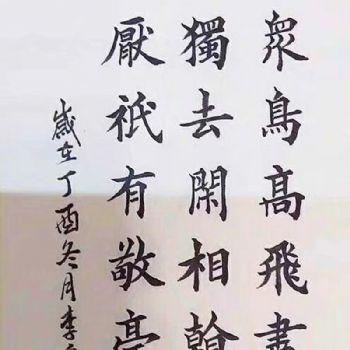 眾鳥髙飛盡
獨去閑相
厭祇有敬亭
歲在丁酉冬月李